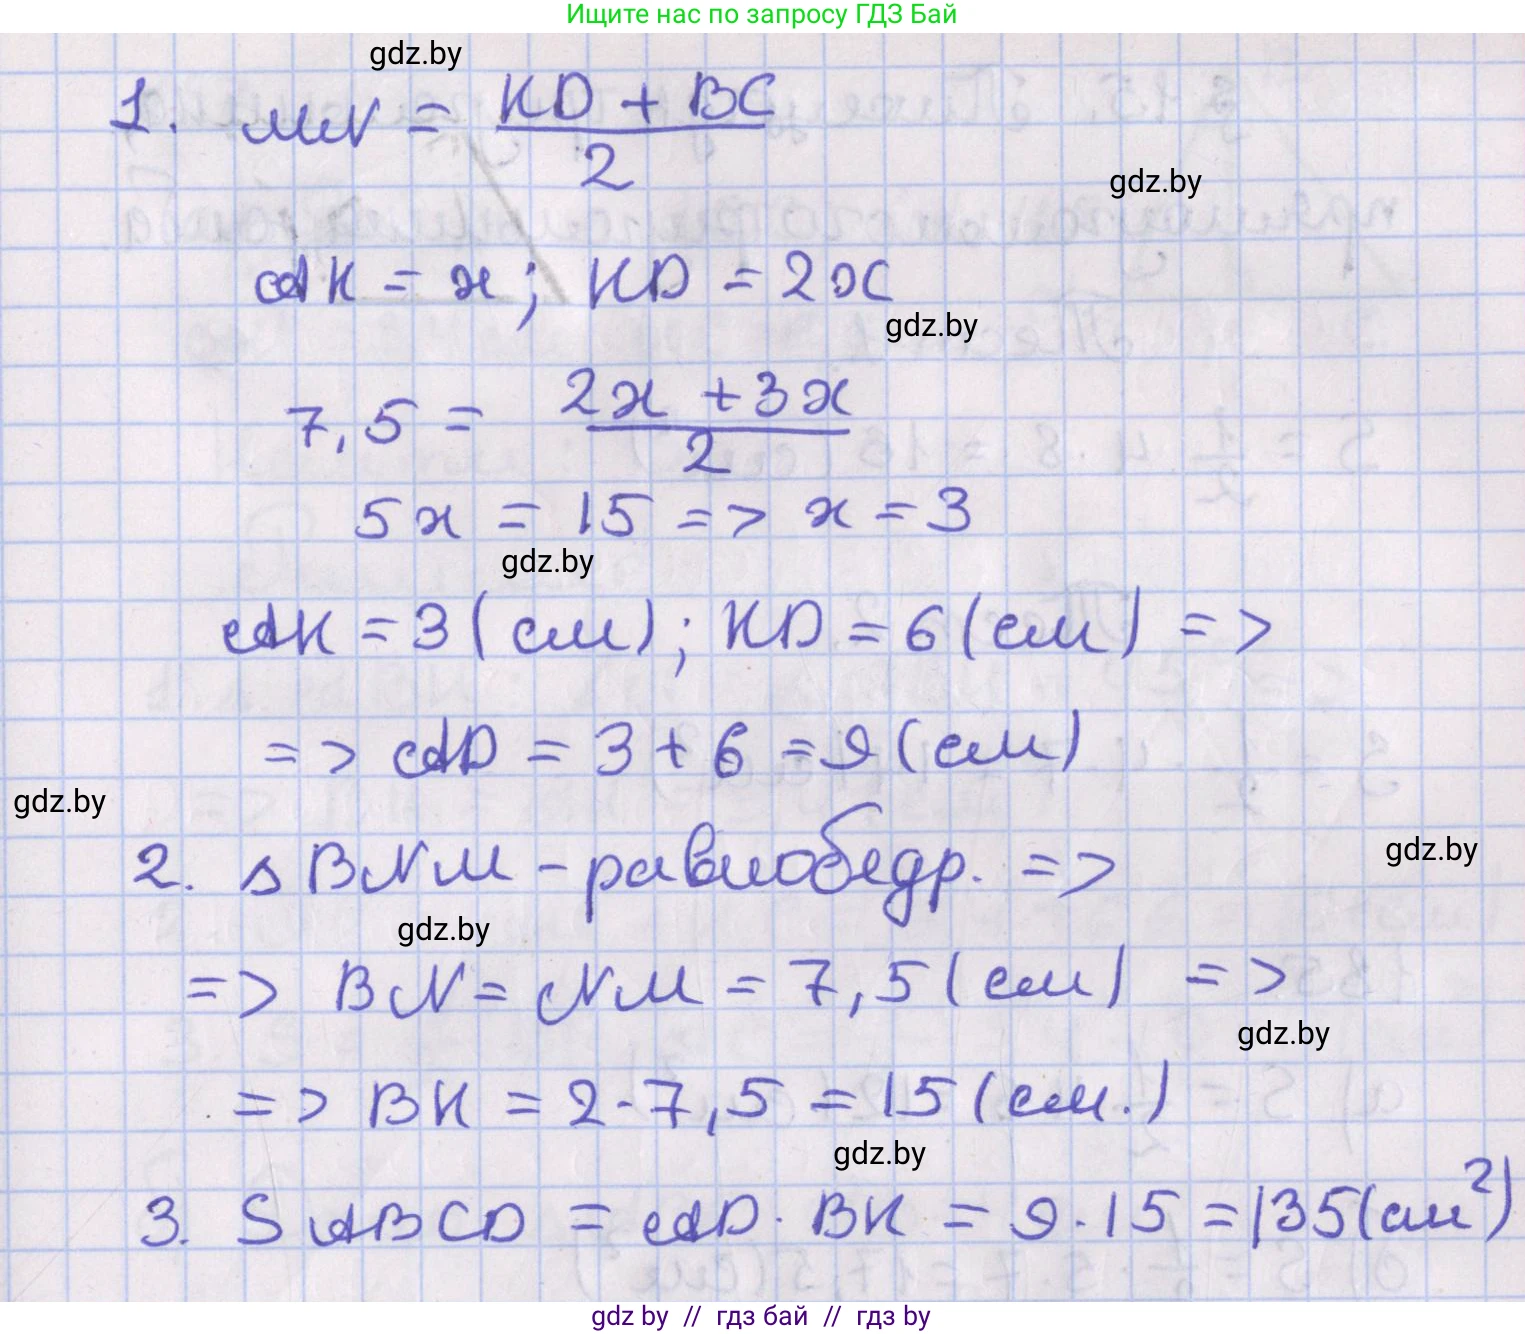 Ищите нас по запросу ГДЗ Бай
gdz.by
1. MN = (KD + BC)/2
gdz.by
AK = x; KD = 2x
gdz.by
7,5 = (2x + 3x)/2
5x = 15 => x = 3
gdz.by
AK = 3 (см); KD = 6 (см) =>
=> AD = 3 + 6 = 9 (см)
gdz.by
2. △ BNM - равнобедр. =>
gdz.by
gdz.by
=> BN = NM = 7,5 (см) =>
gdz.by
=> BK = 2 · 7,5 = 15 (см.)
gdz.by
3. S ABCD = AD · BK = 9 · 15 = 135 (см²)
gdz by // гдз бай // гдз by